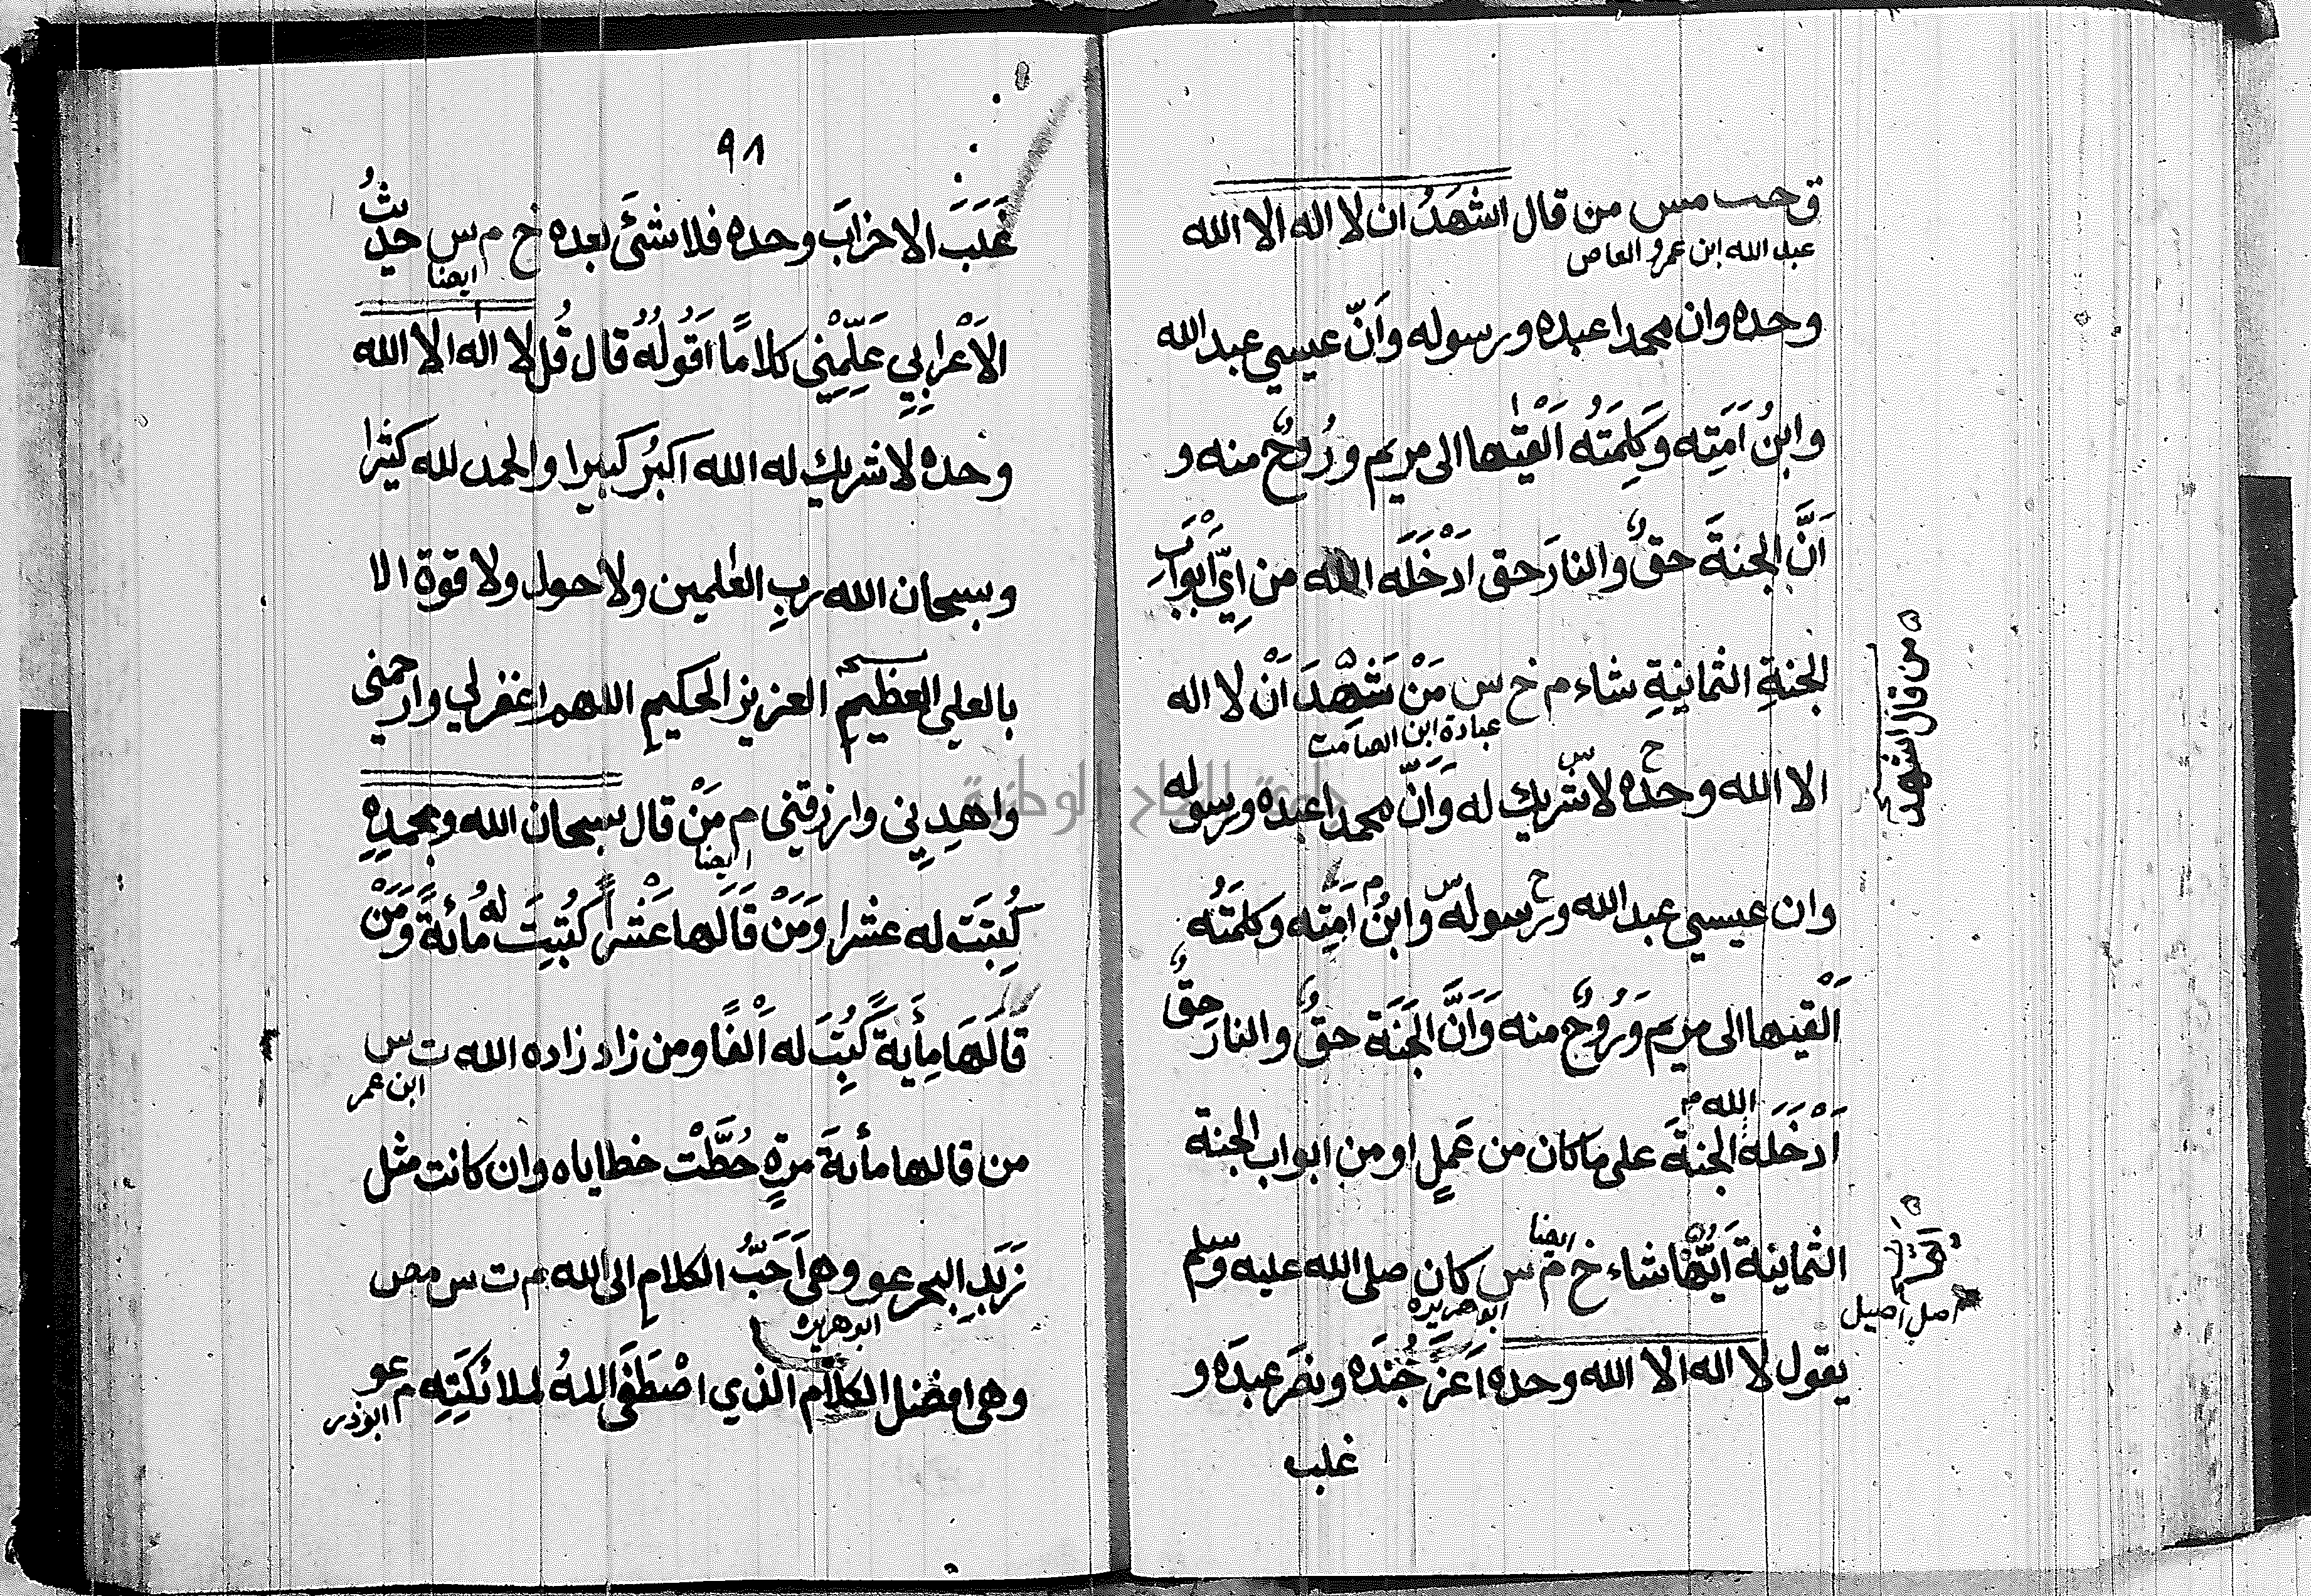 ق حب مس من قال اشهَدُ ان لا اله الا الله
عبد الله ابن عمرو العاص
وحده وان محمدا عبده ورسوله وَاَنّ عيسي عبد الله
وابنُ اَمَتِه وَكَلِمَتُه اَلْقٰيها الى مريم ورُوحٌ منه و
اَنَّ الجنةَ حقٌ والنارَ حق اَدْخَلَه الله من اَيِّ اَبْوَابِ
الجنةِ الثمانيةِ شاء م خ س مَنْ شَهِدَ اَنْ لا اله
عبادة ابن الصامت
من قال اشهد
الا الله وحدَه لا شريك له وَاَنَّ محمدا عبده ورسوله
جامعة النجاح الوطنية
وان عيسي عبد الله ورسوله وابنُ اَمَتِه وكلمَتُه
اَلْقيها الى مريم وَرُوحٌ منه وَاَنَّ الجَنَة حقٌ والنارَ حقٌ
الله م
اَدْخَلَه الجنةَ على ما كان من عَمَلٍ او من ابواب الجنة
الثمانيَة اَيُّها شاء خ م س كان صلى الله عليه وسلم
ايضا
ابو هريرة
اصل اصيل
يقول لا اله الا الله وحده اَعَزَّ جُنْدَه ونصَر عبدَه و
غلب
٩٨
غَلَبَ الاحزابَ وحده فلا شئَ بعده خ م س حديثُ
ايضا
الاَعْرابِي عَلِّمْنِي كلامًا اَقُولُهُ قال قُل لا اله الا الله
وحده لا شريك له الله اكبرُ كبيرا والحمد لله كثيرا
وسبحان الله ربِ العٰلمين ولا حول ولا قوة الا
بالعلي العظيم العزيز الحكيم اللهم اغفر لي وارحمني
واهدِني وارزقني م مَنْ قال سبحان الله وبحمدِهِ
ايضا
كُتِبَت له عشرا وَمَنْ قَالَها عَشْراً كُتِبَتَ له مُائةً وَمَنْ
قَالَهَا مِأيةً كُتِبَتَ له اَلْفًا ومن زاد زاده الله ت س
ابن عمر
من قالها مأية مرةٍ حُطَّتْ خطاياه وان كانت مثل
زَبَدِ البحر عو وهي اَحَبُّ الكلامِ الى الله م ت س مص
ابو هريره
وهي افضل الكلام الذي اصْطَفَى اللهُ لملائكَتِه م عو
ابوذر